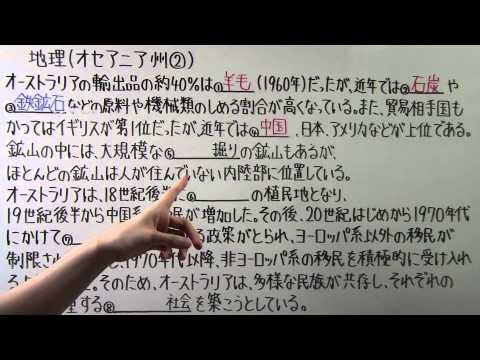 地理(オセアニア州②)
オーストラリアの輸出品の約40%は①羊毛(1960年)だったが、近年では②石炭や
③鉄鉱石などの原料や機械類のしめる割合が高くなっている。また、貿易相手国も
かつてはイギリスが第1位だったが、近年では④中国、日本、アメリカなどが上位である。
鉱山の中には、大規模な⑤ 掘りの鉱山もあるが、
ほとんどの鉱山は人が住んでいない内陸部に位置している。
オーストラリアは、18世紀後半に⑥ の植民地となり、
19世紀後半から中国系 民が増加した。その後、20世紀はじめから1970年代
にかけて⑦ る政策がとられ、ヨーロッパ系以外の移民が
制限さ 、1970年代以降、非ヨーロッパ系の移民を積極的に受け入れ
。そのため、オーストラリアは、多様な民族が共存し、それぞれの
する⑧ 社会を築こうとしている。